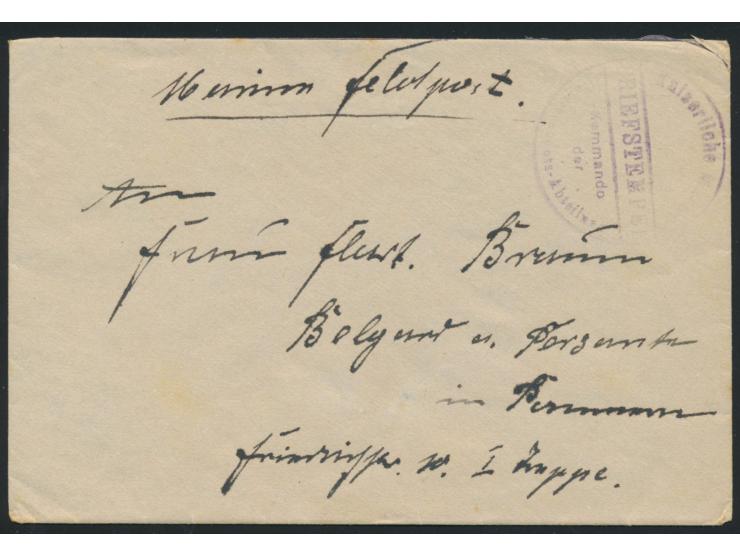 Marine Feldpost.
Kaiserliche M
BRIEFSTEMPE
Kommando
der
ots-Abteilun
An
Frau Hart. Braun
Belgard a. Persante
in Pommern
Friedrichstr. 10. I Treppe.